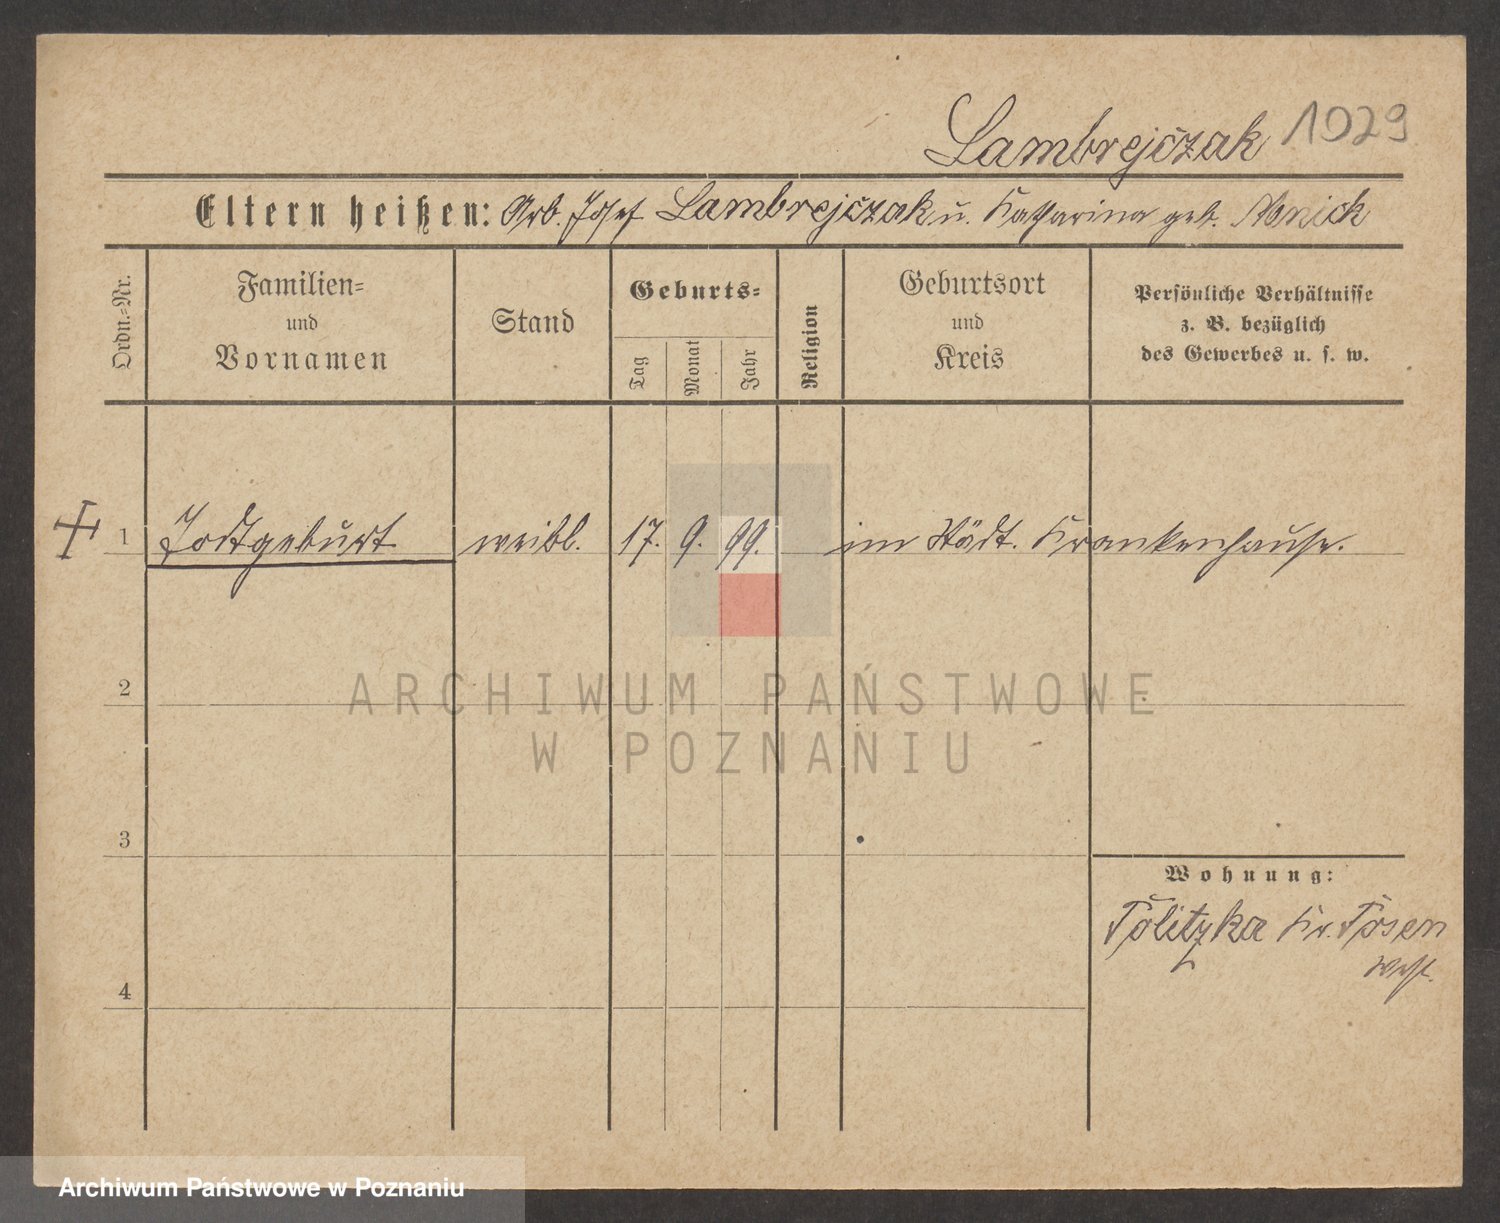 Lambrejczak 1029
Eltern heißen: Arb. Josef Lambrejczak u. Katharina geb. Nonick
Ordn.-Nr.
Familien- und Vornamen
Stand
Geburts-
Tag
Monat
Jahr
Religion
Geburtsort und Kreis
Persönliche Verhältnisse
z. B. bezüglich
des Gewerbes u. s. w.
1 Todtgeburt weibl. 17. 9. 99. im Städt. Krankenhause.
2
ARCHIWUM PAŃSTWOWE
W POZNANIU
3
Wohnung:
Kr. Posen
West.
4
Archiwum Państwowe w Poznaniu